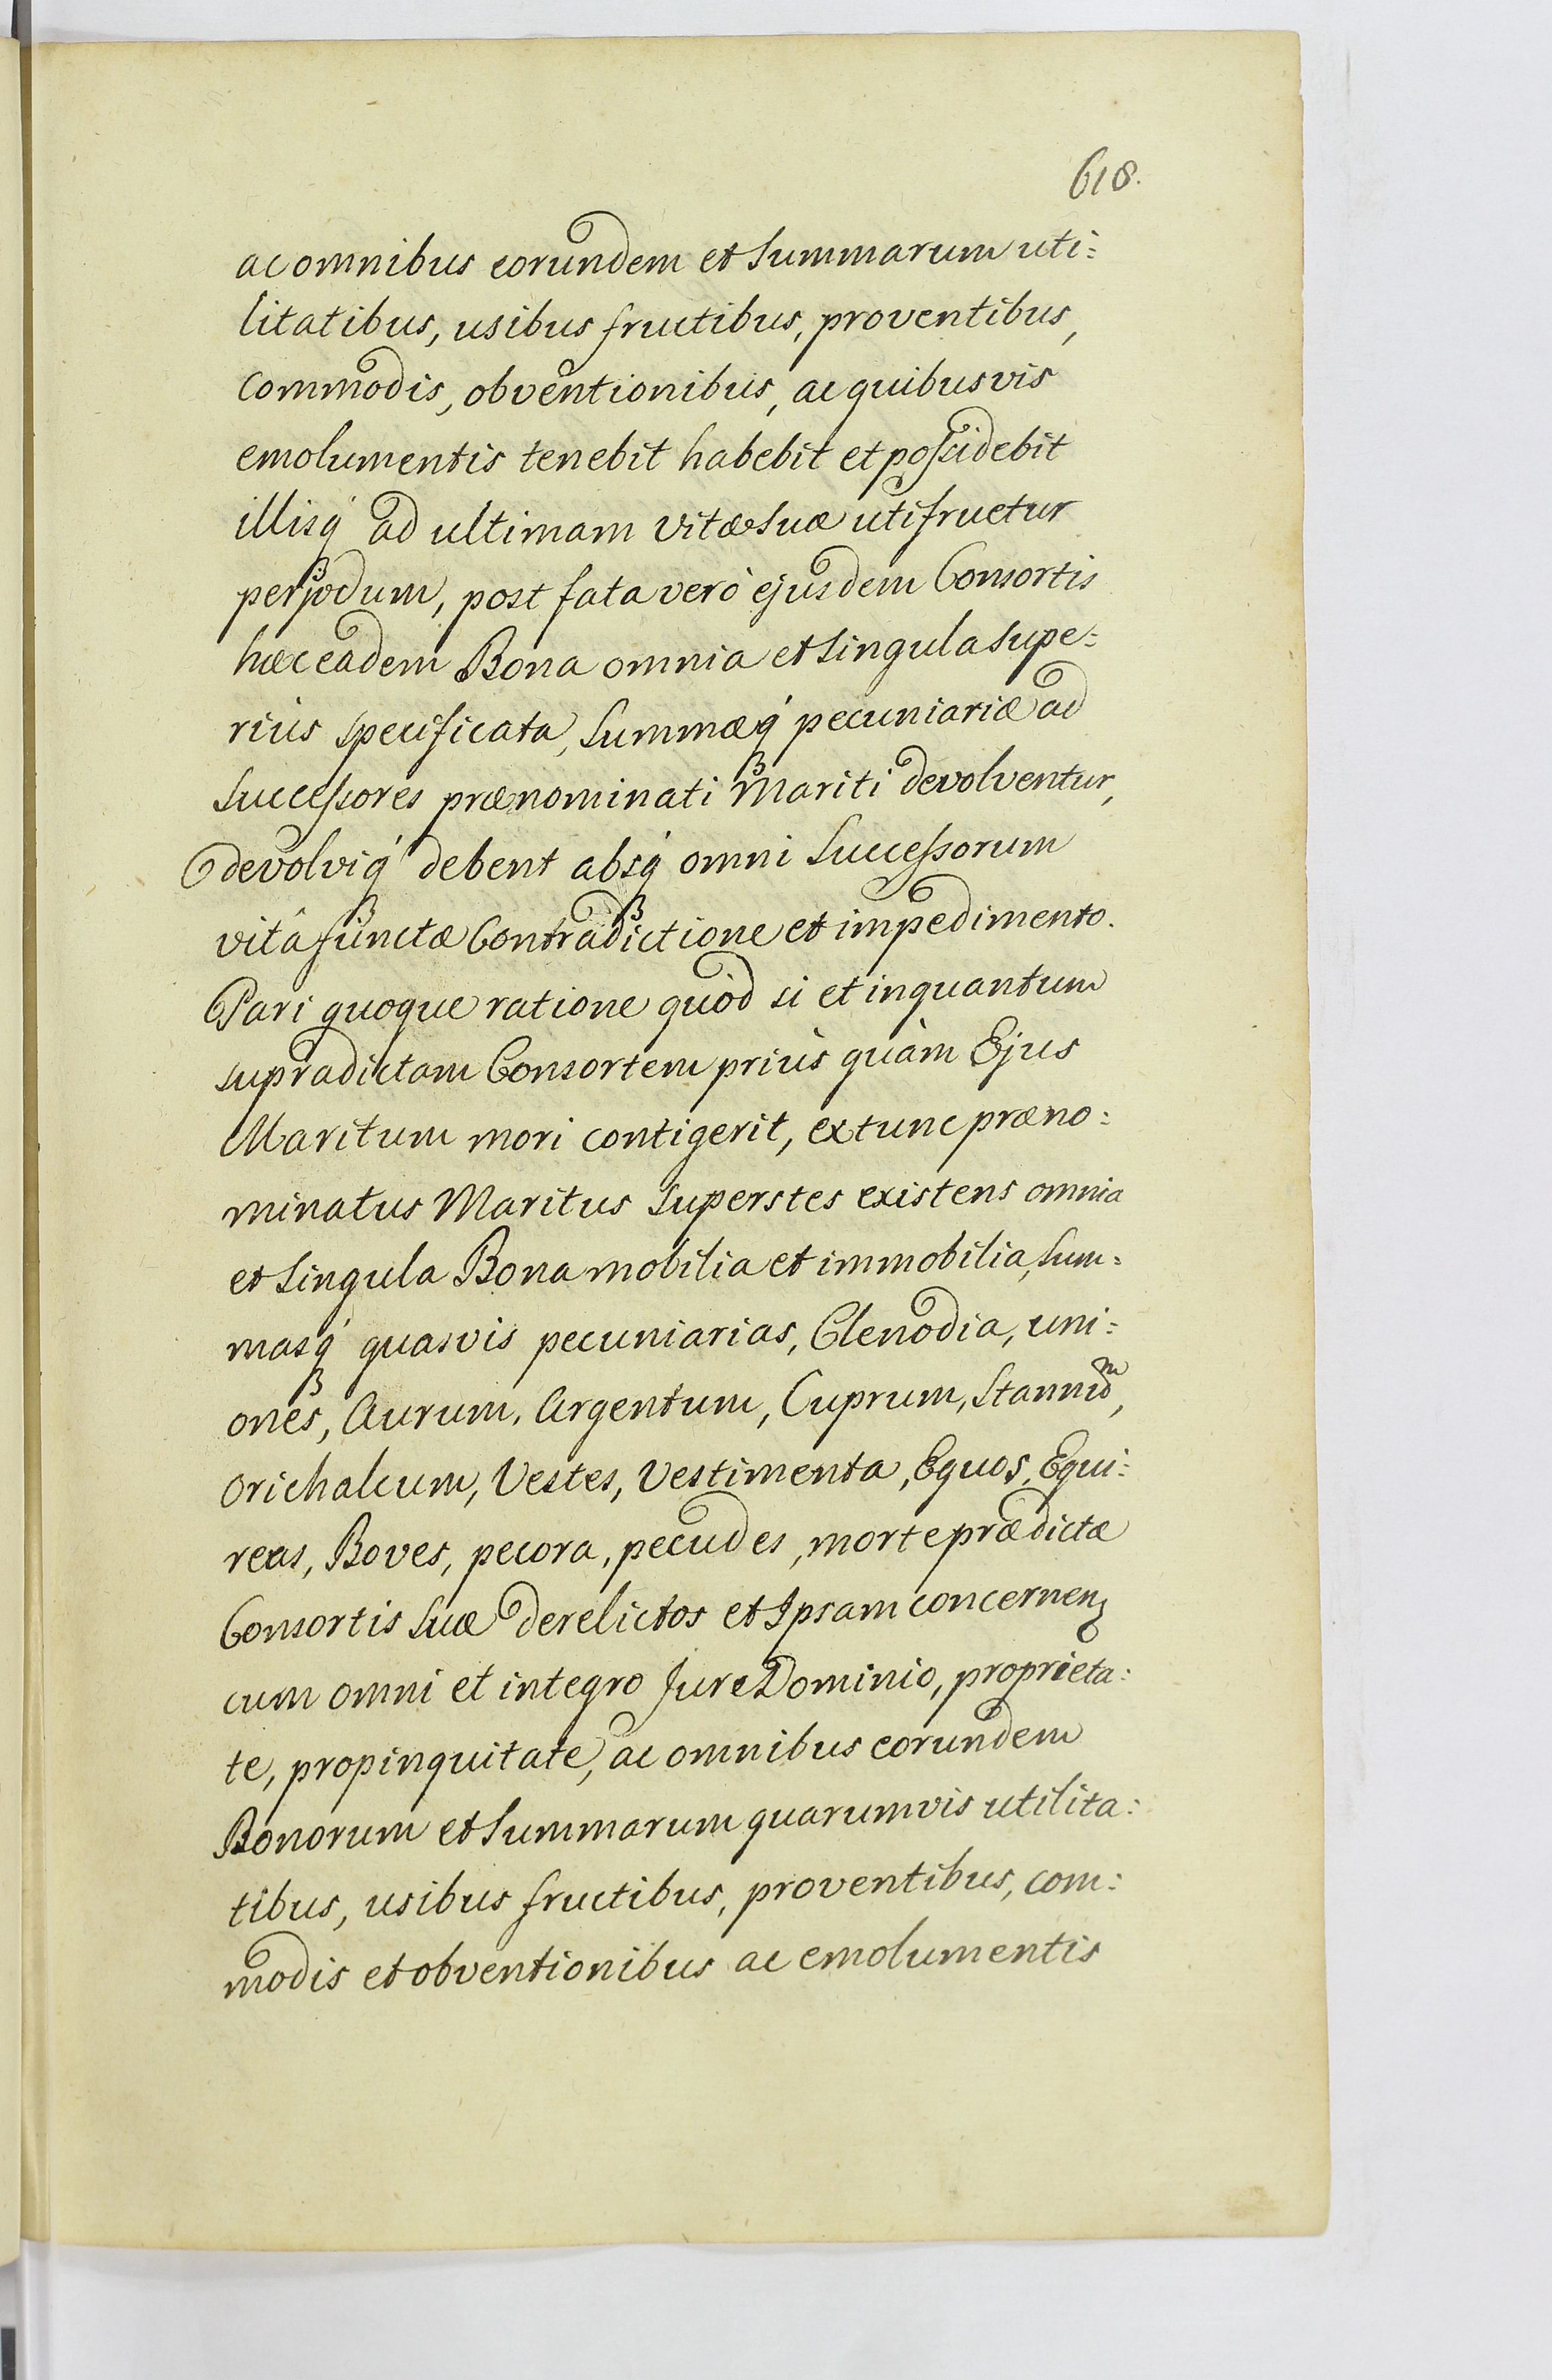 618.
ac omnibus eorundem et Summarum uti:
litatibus, usibus fructibus, proventibus,
commodis, obventionibus, ac quibusvis
emolumentis tenebit habebit et possidebit
illisq́ ad ultimam vitæ suæ utifruetur
perjodum, post fata verò ejusdem Consortis
hæc eadem Bona omnia et singula supe:
rius specificata, Summæq́ pecuniariæ ad
Successores prænominati Mariti devolventur,
devolviq́ debent absq́ omni Successorum
vitâ functæ Contradictione et impedimento.
Pari quoque ratione quòd si et inquantum
supradictam Consortem priùs quàm Ejus
Maritum mori contigerit, extunc præno:
minatus Maritus superstes existens omnia
et singula Bona mobilia et immobilia, Sum:
masq́ quasvis pecuniarias, Clenodia, uni:
ones, Aurum, Argentum, Cuprum, Stannũ,
Orichalcum, Vestes, Vestimenta, Equos, Equi:
reas, Boves, pecora, pecudes, morte prædictæ
Consortis suæ derelictos et Ipsam concernen
cum omni et integro Jure Dominio, proprieta:
te, propinquitate, ac omnibus eorundem
Bonorum et Summarum quarumvis utilita:
tibus, usibus fructibus, proventibus, com:
modis et obventionibus ac emolumentis